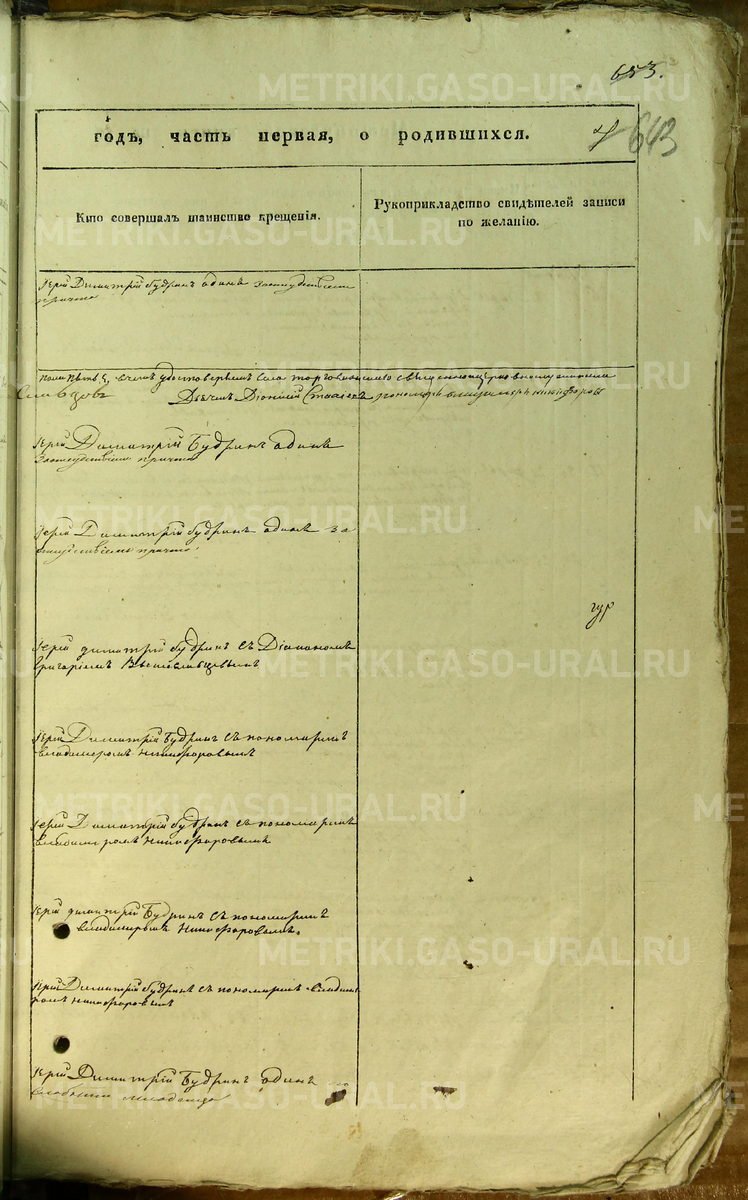 653.
643
годъ, часть первая, о родившихся.
Кто совершалъ таинство крещенія.
Рукоприкладство свидѣтелей записи
по желанію.
Іерей Димитрій Будринъ одинъ
причта
удостовѣряемъ
Дьячекъ Діонисій пономарь Владимеръ Никифоровъ
Іерей Димитрій Будринъ одинъ
причта
Іерей Димитрій Будринъ одинъ за
отсутствіемъ причта
Іерей Димитрій Будринъ съ Діакономъ
Григоріемъ
Іерей Димитрій Будринъ съ пономаремъ
Владимеромъ Никифоровымъ
Іерей Димитрій Будринъ съ пономаремъ
Владимеромъ Никифоровымъ
Іерей Димитрій Будринъ съ пономаремъ
Владимеромъ Никифоровымъ.
Іерей Димитрій Будринъ съ пономаремъ Владиме
ромъ Никифоровымъ
Іерей Димитрій Будринъ одинъ по
слабости младенца
METRIKI.GASO-URAL.RU